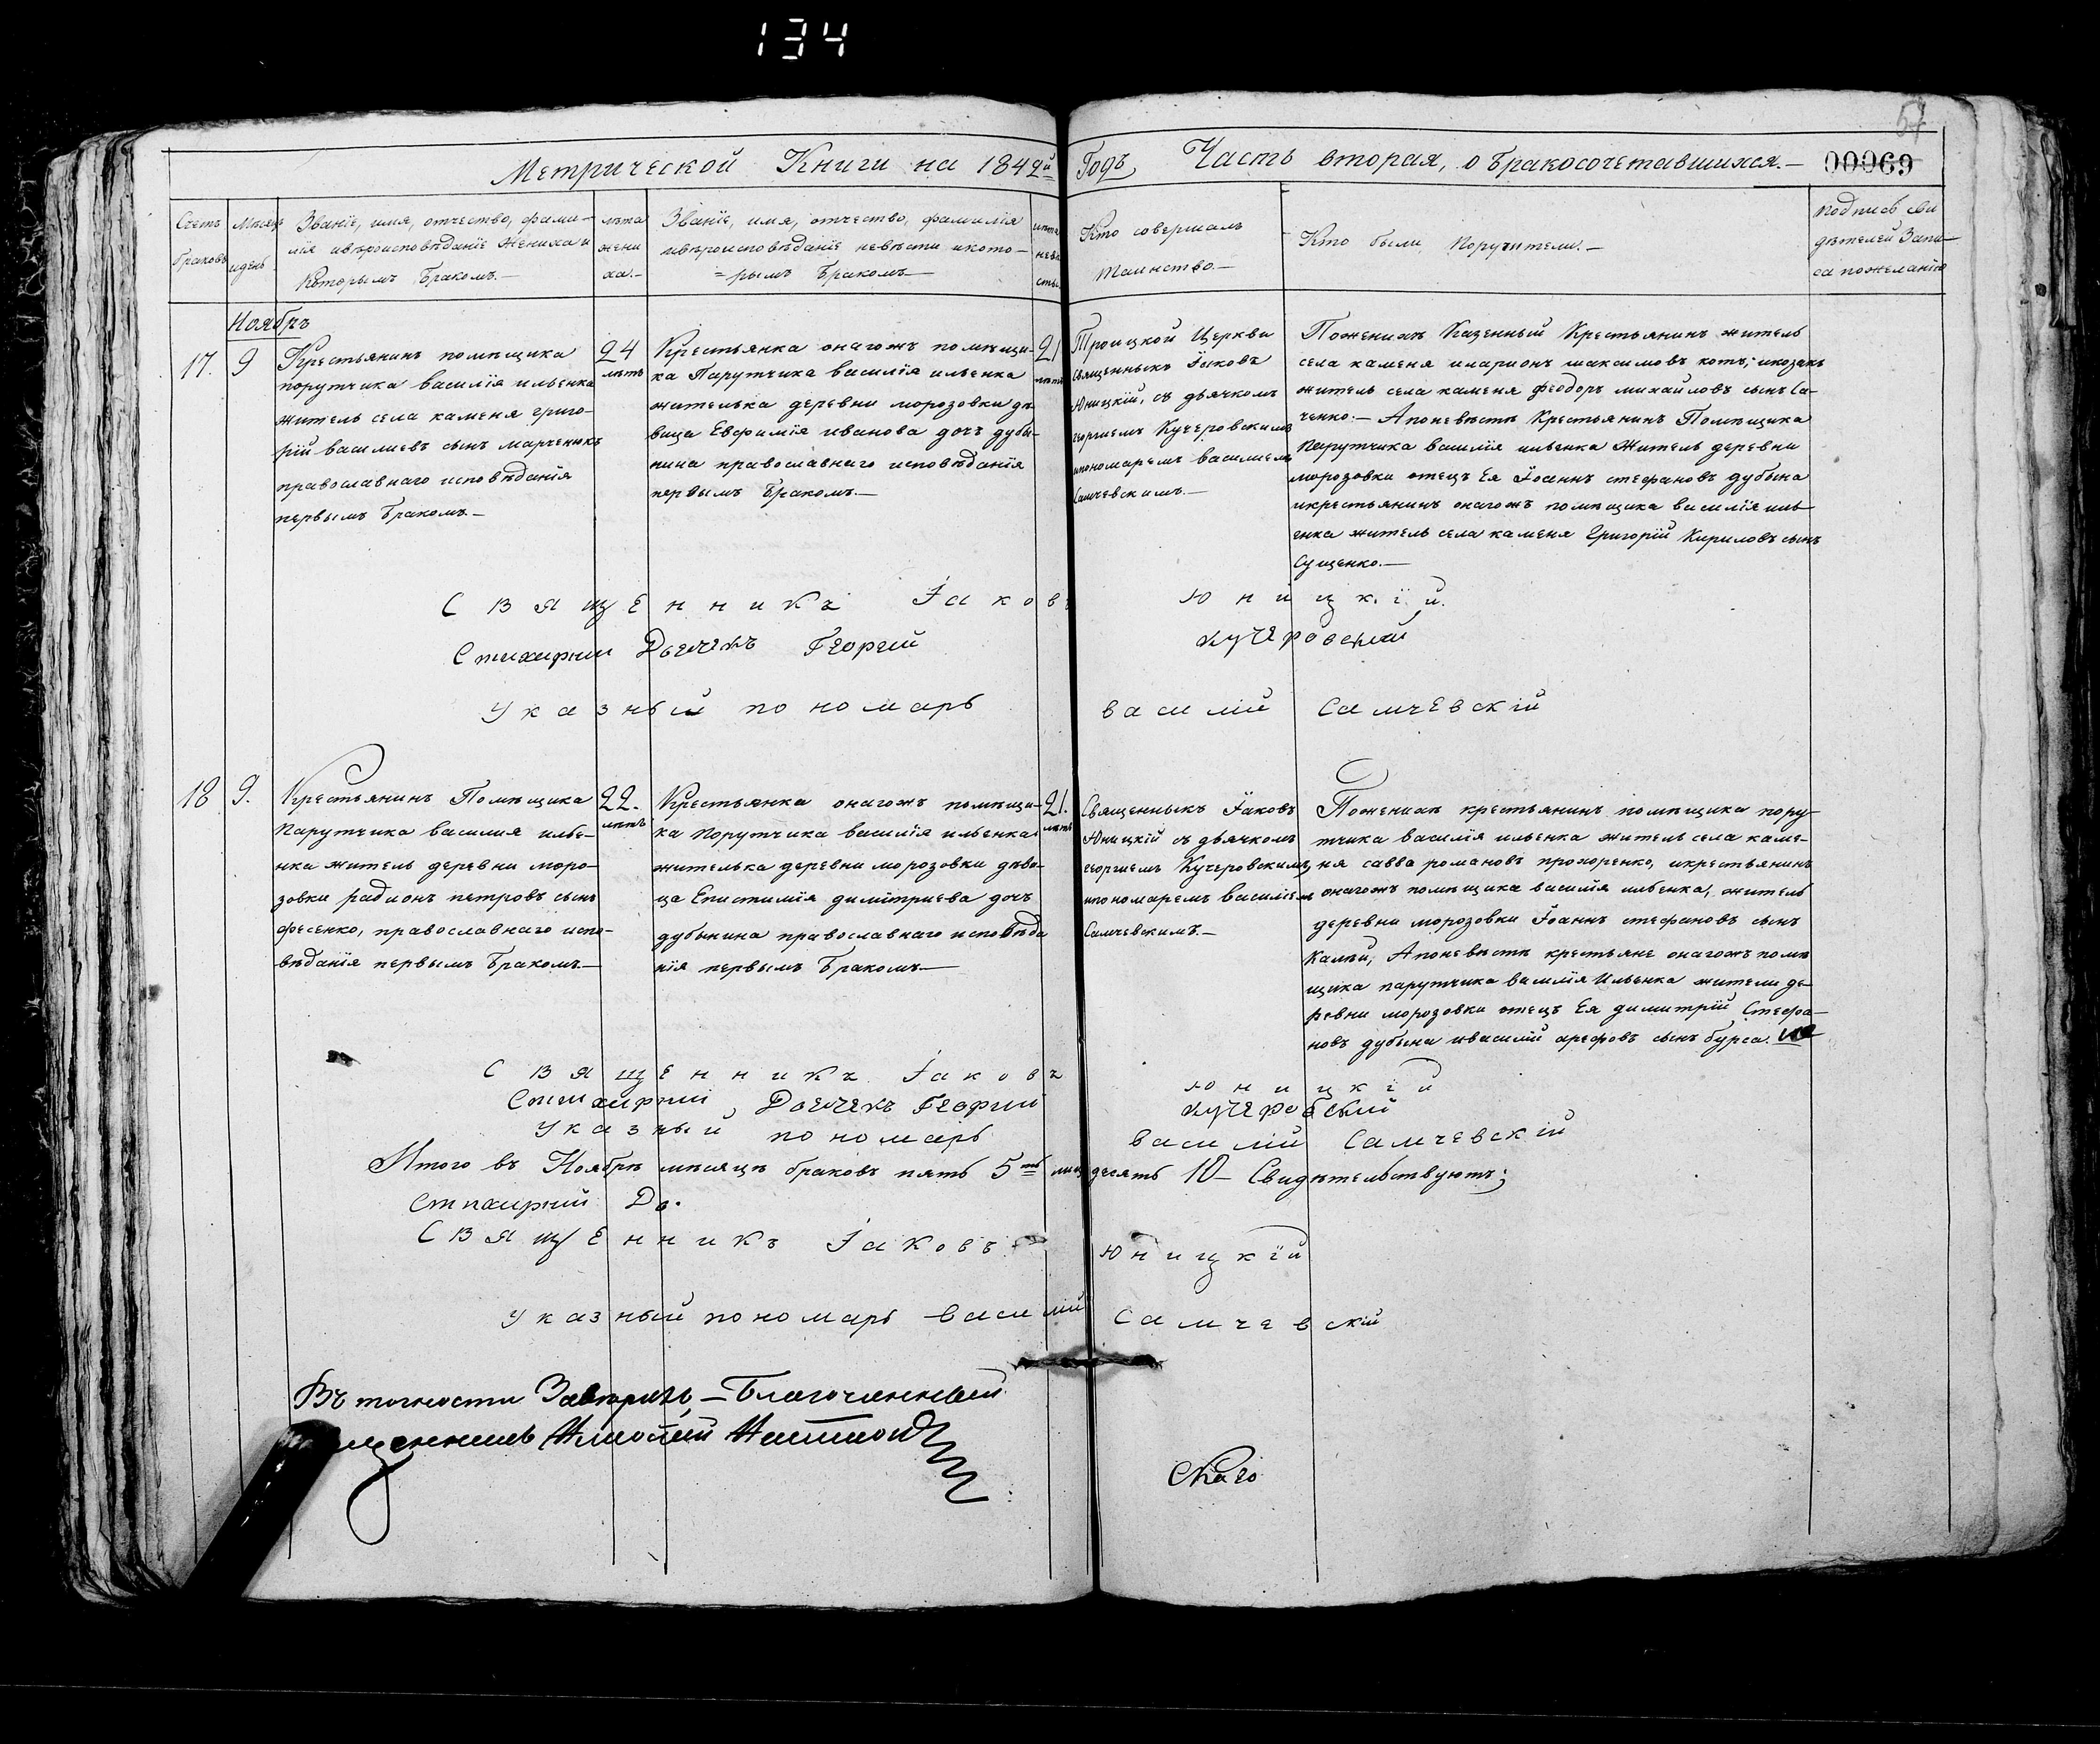 134
57
Метрической Книги на 1842й Годъ, Часть вторая, о бракосочетавшихся.— 00069
Счетъ браковъ
Мѣсяцъ и день
Званіе, имя, отчество, фами-
лія ивѣроисповѣданіе Жениха и
Которымъ Бракомъ.—
лѣта
жени
ха.—
Званіе, имя, отчество, фамилія
ивѣроисповѣданіе невѣсти икото-
=рымъ Бракомъ—
лѣта
невѣ
сты.
Кто совершалъ
таинство.—
Кто были Поручители.—
подпись сви
дѣтелей Запи—
са пожеланію
Ноябрь
17. 9
Крестьянинъ помѣщика
порутчика василія ильенка
житель села каменя григо-
рій василиевъ сынъ марченокъ
православнаго исповѣданія
первымъ Бракомъ.—
24
лѣтъ
Крестьянка онагожъ помѣщи-
ка Парутчика василія ильенка
жителька деревни морозовки дѣ-
вица Евфимія иванова дочь дубы-
нина православнаго исповѣданія
первымъ Бракомъ.—
21
лѣтъ
Троицкой Церкви
священникъ Іаковъ
Юницкій, съ дьячкомъ
георгиемъ Кучеровскимъ
ипономаремъ василиемъ
Самчевскимъ.—
Поженихѣ Казенный Крестьянинъ житель
села каменя иларионъ максимовъ котъ; икозакъ
житель села каменя феодоръ михайловъ сынъ Са-
ченко.— Апоневѣстѣ Крестьянинъ Помѣщика
Парутчика василія ильенка Житель деревни
морозовки отецъ Ея Іоаннъ стефановъ дубына
икрестьянинъ онагожъ помѣщика василія иль
енка житель села каменя Григорій Кириловъ сынъ
Сущенко.—
Священникъ Іаковъ Юницкій.
Стихарний Дьячекъ Георгій Кучеровский
Указный пономарь василій Самчевскій
18 9.
Крестьянинъ Помѣщика
Парутчика василия илье-
нка житель деревни моро-
зовки радионъ петровъ сынъ
фесенко, православнаго испо-
вѣданія первымъ Бракомъ.—
22.
лѣтъ
Крестьянка онагожъ помѣщи-
ка Порутчика василія ильенка
жителька деревни морозовки дѣви-
ца Епистимія димітриева дочь
дубынина православнаго исповѣда
нія первымъ Бракомъ.—
21.
лѣтъ
Священникъ Іаковъ
Юницкій съ дьячкомъ
георгиемъ Кучеровскимъ,
ипономаремъ василіемъ
Самчевскимъ.—
Поженихѣ крестьянинъ помѣщика пору-
тчика василія ильенка житель села каме-
ня савва романовъ прохоренко, икрестьянинъ
онагожъ помѣщика василія ильенка, житель
деревни морозовки Іоаннъ стефановъ сынъ
Апоневѣстѣ крестьяне онагожъ помѣ
щика парутчика василія Ильенка жители де-
ревни морозовки отецъ Ея димитрий Стефа-
новъ дубына ивасилій арефовъ сынъ бурса.
Священникъ Іаковъ Юницкій
Стихарний Дьячекъ Георгий Кучеровский
Указный пономарь василій Самчевскій
Итого въ Ноябрѣ мѣсяцѣ браковъ пять 5ть лицъ десять 10— Свидѣтельствуютъ;
Стихарний Дь.
Священникъ Іаковъ Юницкій
Указный пономарь василій Самчевскій
Въ точности Завѣрилъ,— Благочинный